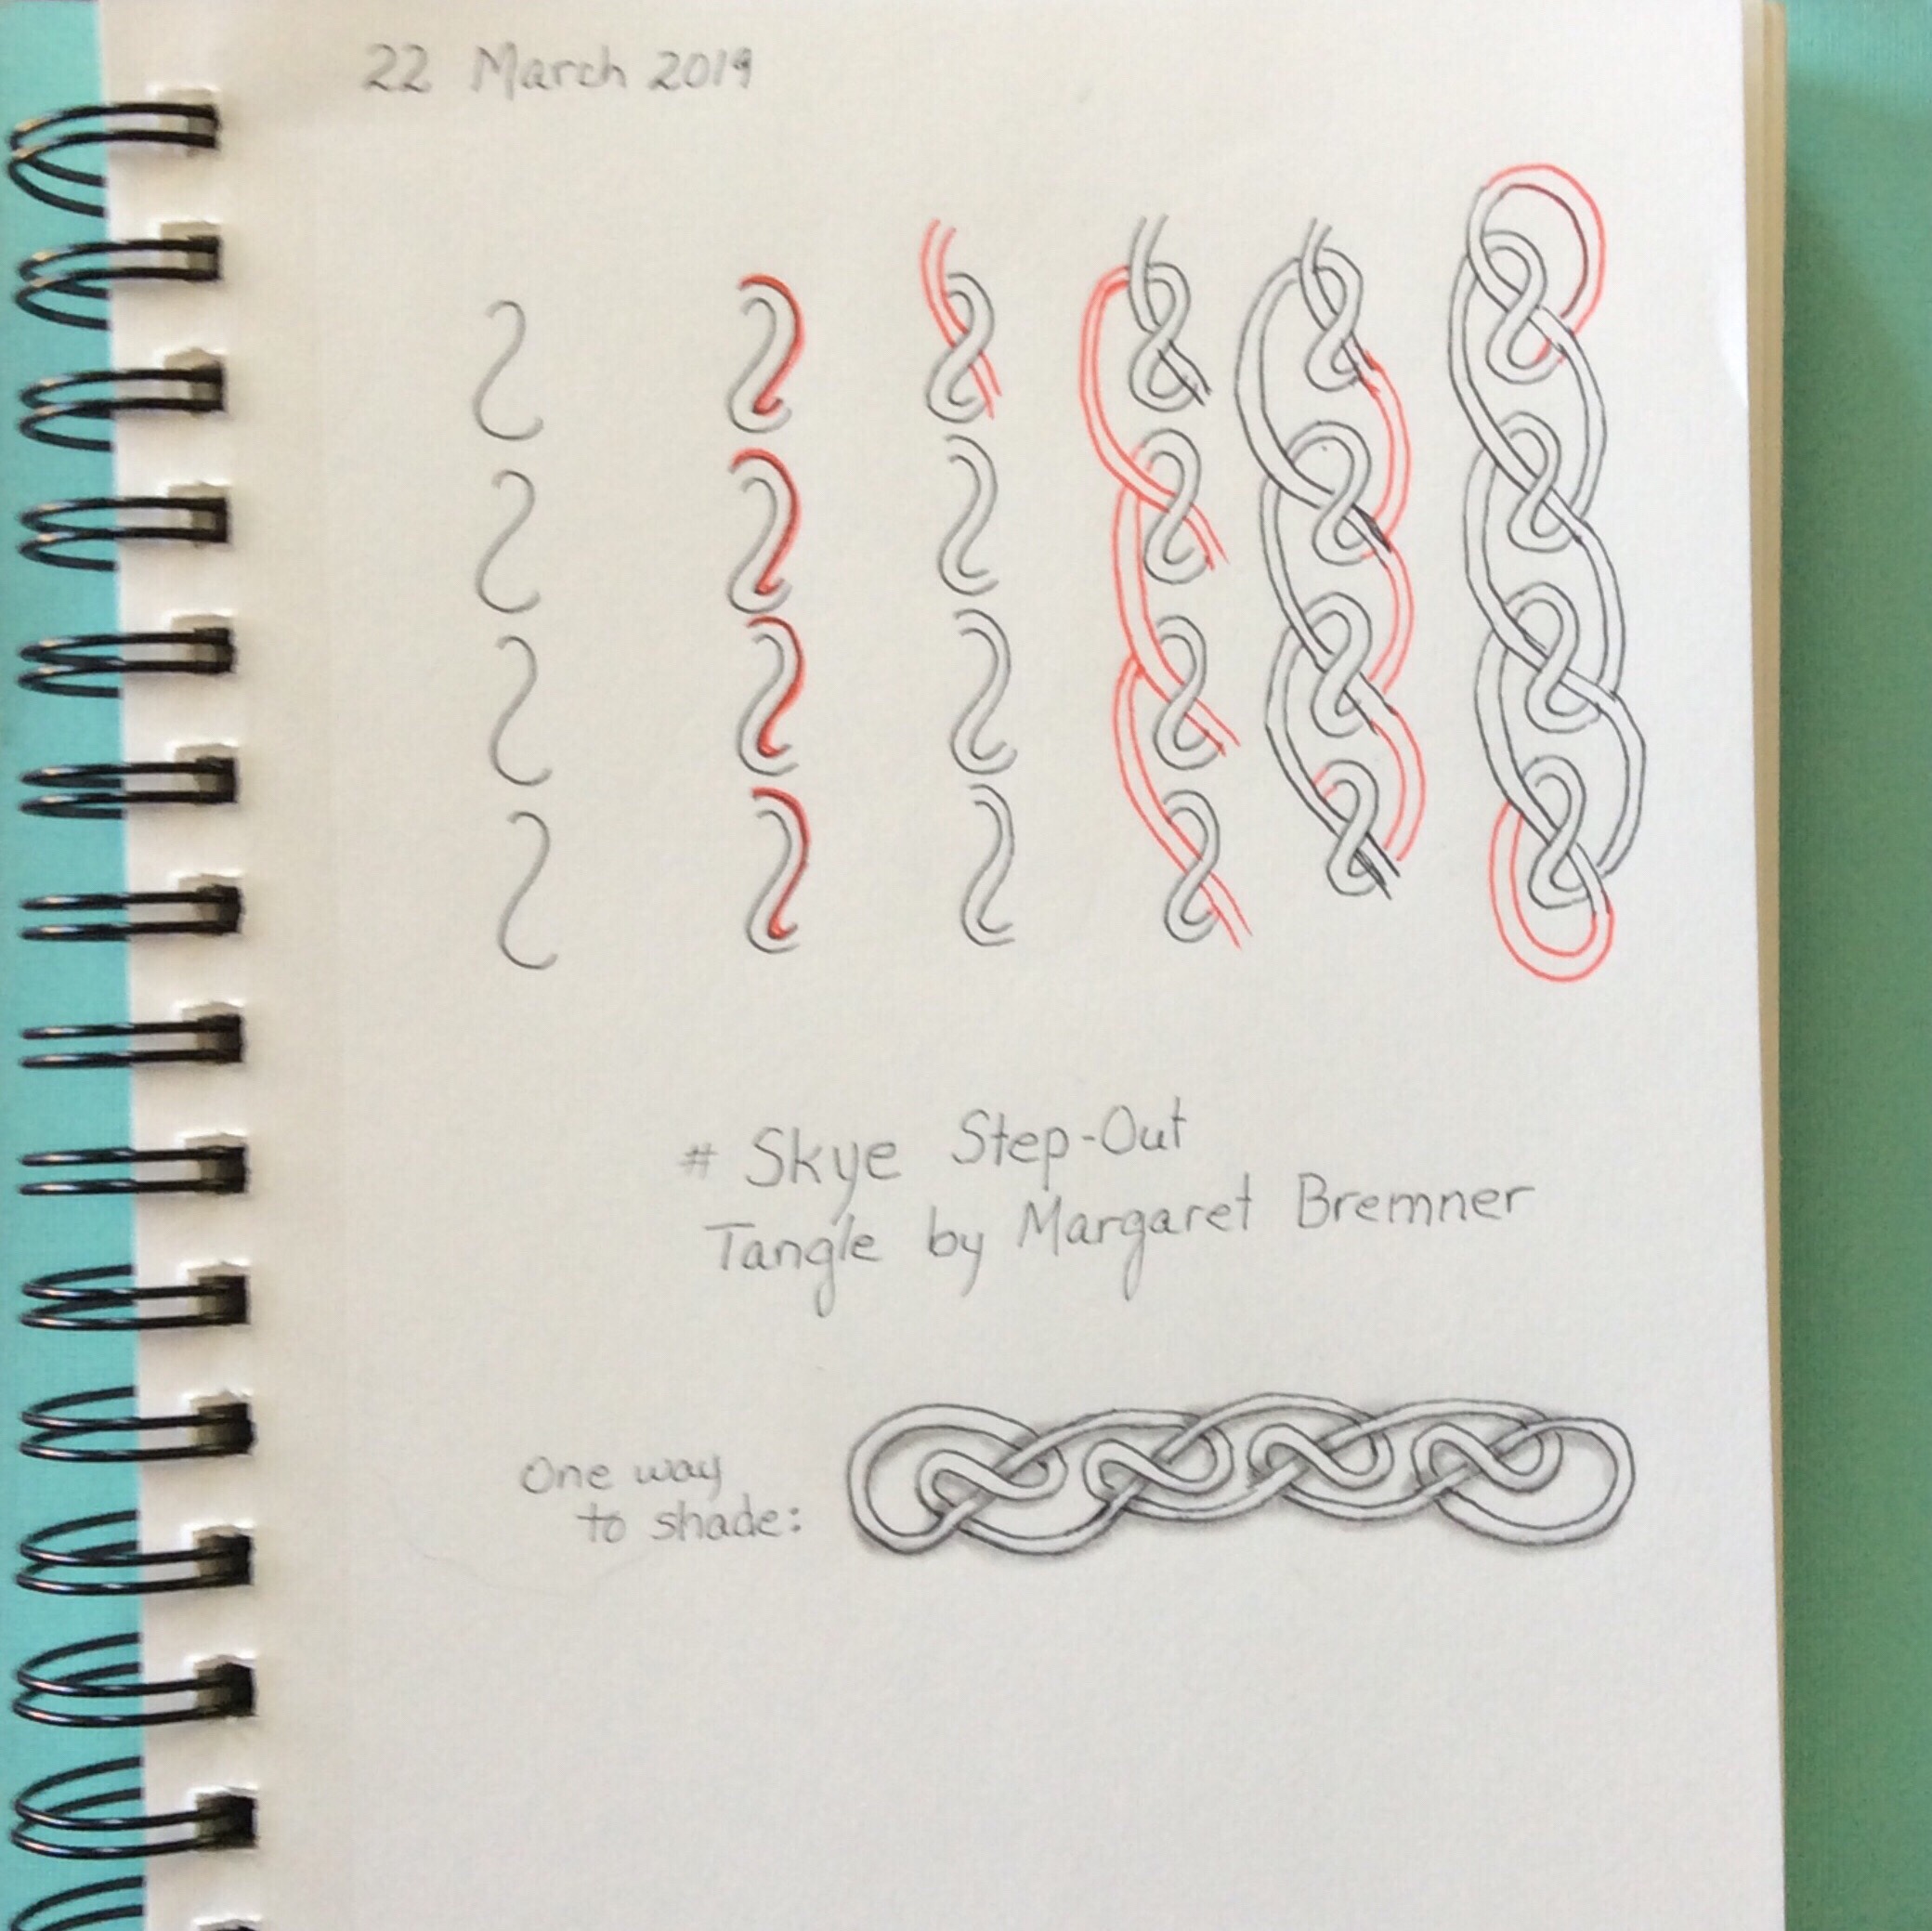 22 March 2019
# Skye Step-Out
Tangle by Margaret Bremner
One way
to shade: